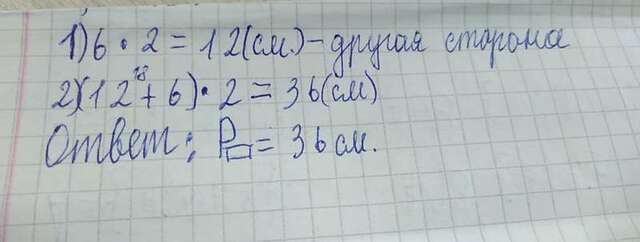 1) 6 • 2 = 12 (см.) - другая сторона
18
2) (12 + 6) • 2 = 36 (см)
Ответ: P▭ = 36 см.